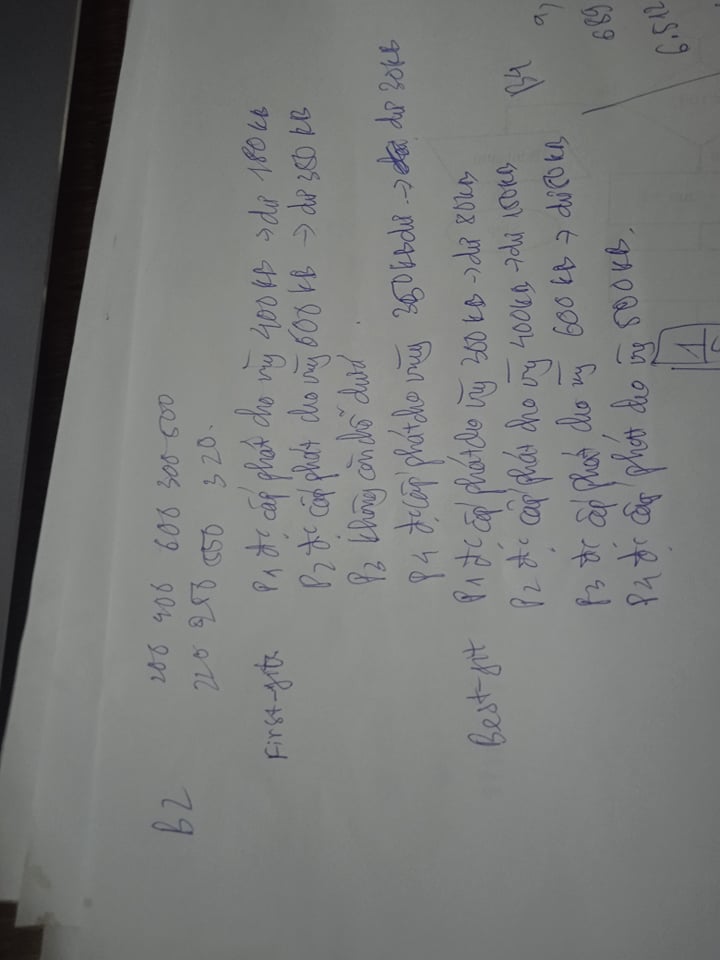 B2
200 400 600 300 500
220 250 550 320.
First-fit P1 đc cấp phát cho vùng 400KB -> dư 180KB
P2 đc cấp phát cho vùng 600KB -> dư 350KB
P3 không còn chỗ
P4 đc cấp phát cho vùng 350KB dư -> dư 30KB
Best-fit P1 đc cấp phát cho vg 300KB -> dư 80KB
P2 đc cấp phát cho vg 400KB -> dư 150KB
P3 đc cấp phát cho vg 600KB -> dư 50KB
P4 đc cấp phát cho vg 500KB.
B4
a,
689
6.512
1